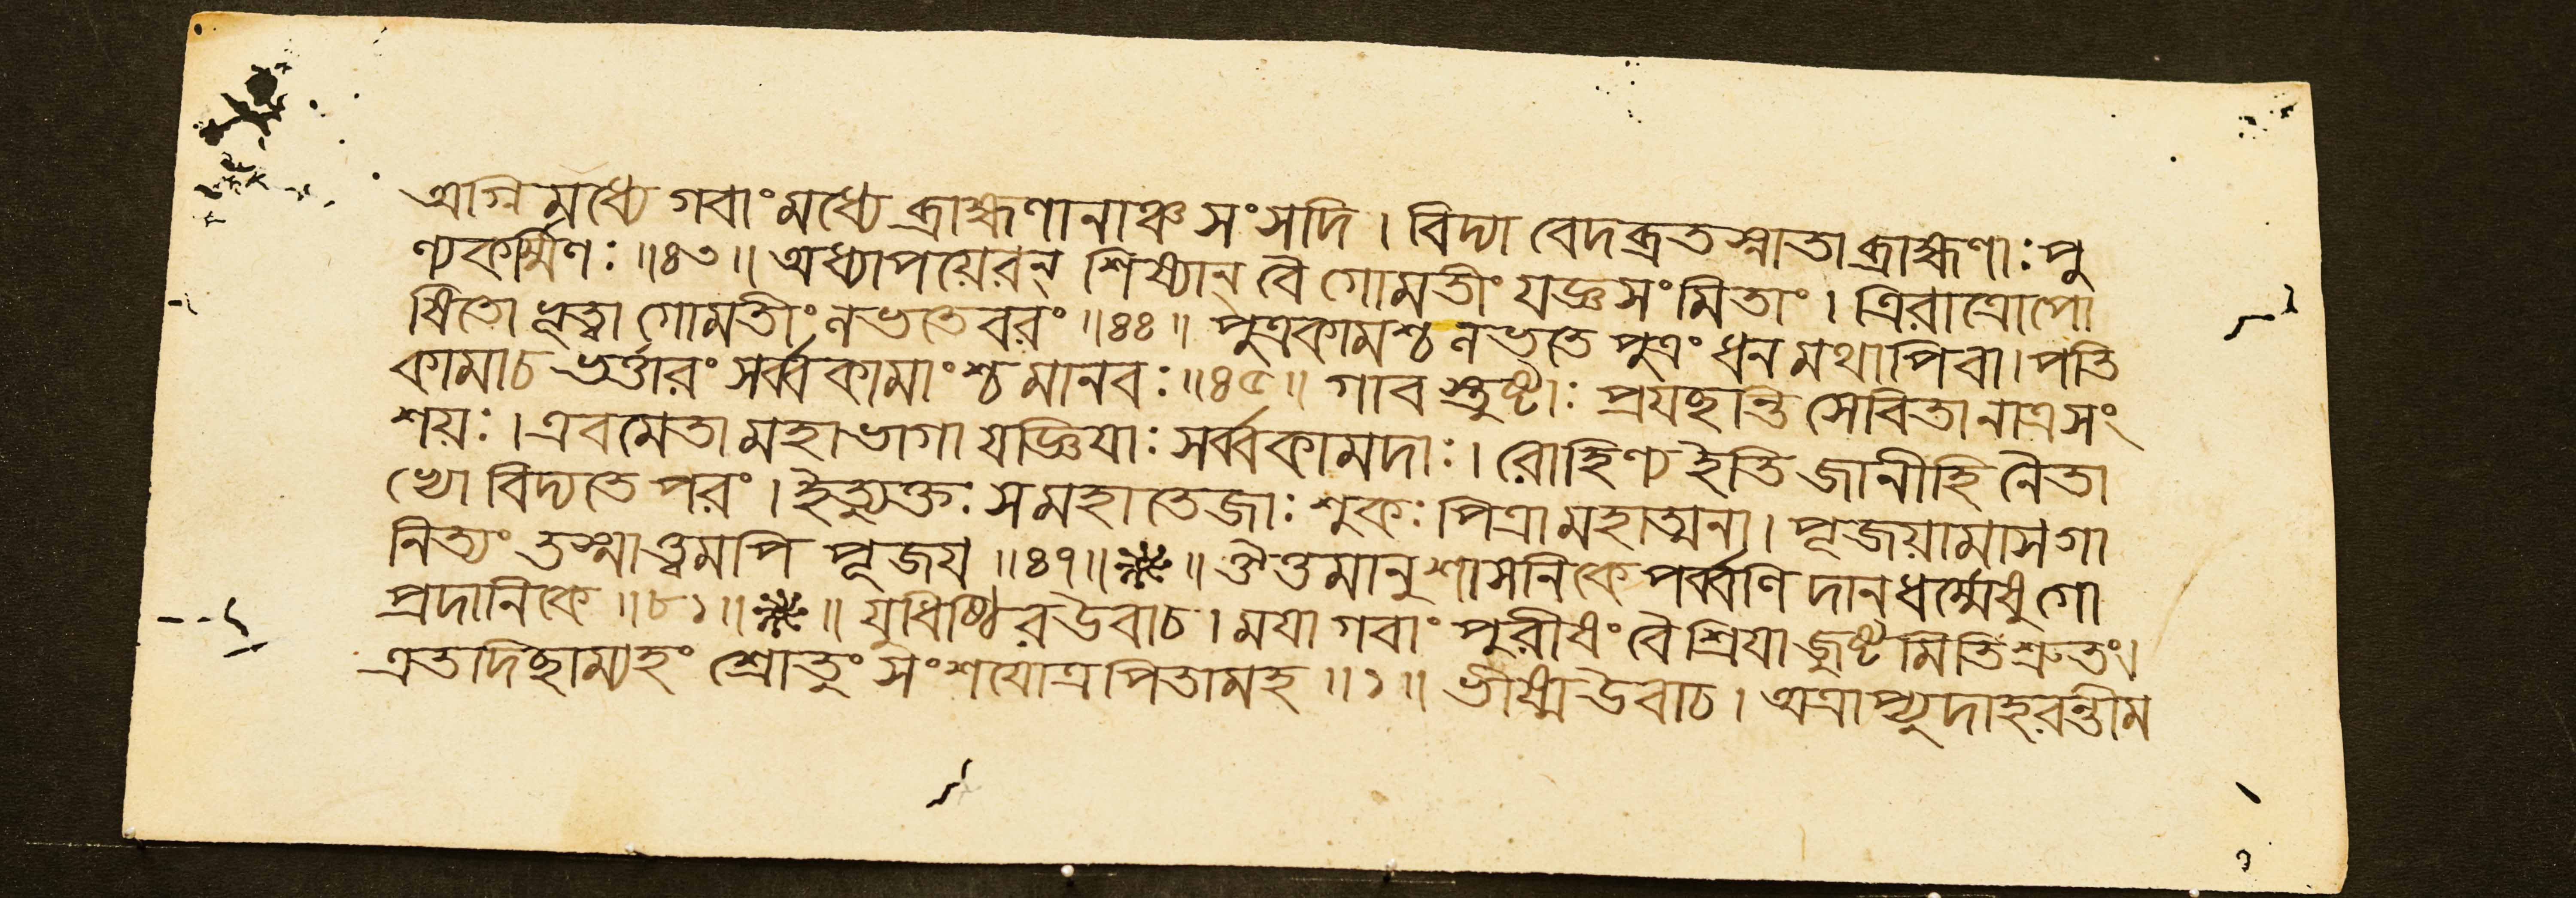 অগ্নিমধ্যে গবাং মধ্যে ব্রাহ্মণানাঞ্চ সংসদি । বিদ্যা বেদব্রতস্নাতা ব্রাহ্মণাঃ পু
ণ্যকর্ম্মিণঃ ॥৪৩॥ অধ্যাপয়েরন্ শিষ্যান্ বৈ গোমতীং যজ্ঞসংমিতাং । ত্রিরাত্রোপো
ষিতো ধৃত্বা গোমতীং লভতে বরং ॥৪৪॥ পুত্রকামশ্চ লভতে পুত্রং ধনমথাপিবা । পতি
কামাচ ভর্ত্তারং সর্ব্বকামাংশ্চ মানবঃ ॥৪৫॥ গাবস্তুষ্টাঃ প্রযচ্ছন্তি সেবিতা নাত্র সং
শয়ঃ । এবমেতা মহাভাগা যজ্ঞিযাঃ সর্ব্বকামদাঃ । রোহিণ্য ইতি জানীহি নৈতা
ভ্যো বিদ্যতে পরং । ইত্যুক্তঃ স মহাতেজাঃ শুকঃ পিত্রা মহাত্মনা । পূজয়ামাস গা
নিত্যং তস্মাত্ত্বমপি পূজয ॥৪৭॥ ❋ ॥ ঔত্তমানুশাসনিকে পর্ব্বণি দানধর্ম্মেষু গো
প্রদানিকে ॥৮১॥ ❋ ॥ যুধিষ্ঠির উবাচ । মযা গবাং পুরীষং বৈ শ্রিযা জুষ্টমিতি শ্রুতং ।
এতদিচ্ছাম্যহং শ্রোতুং সংশযোত্র পিতামহ ॥১॥ ভীষ্ম উবাচ । অত্রাপ্যুদাহরন্তীম